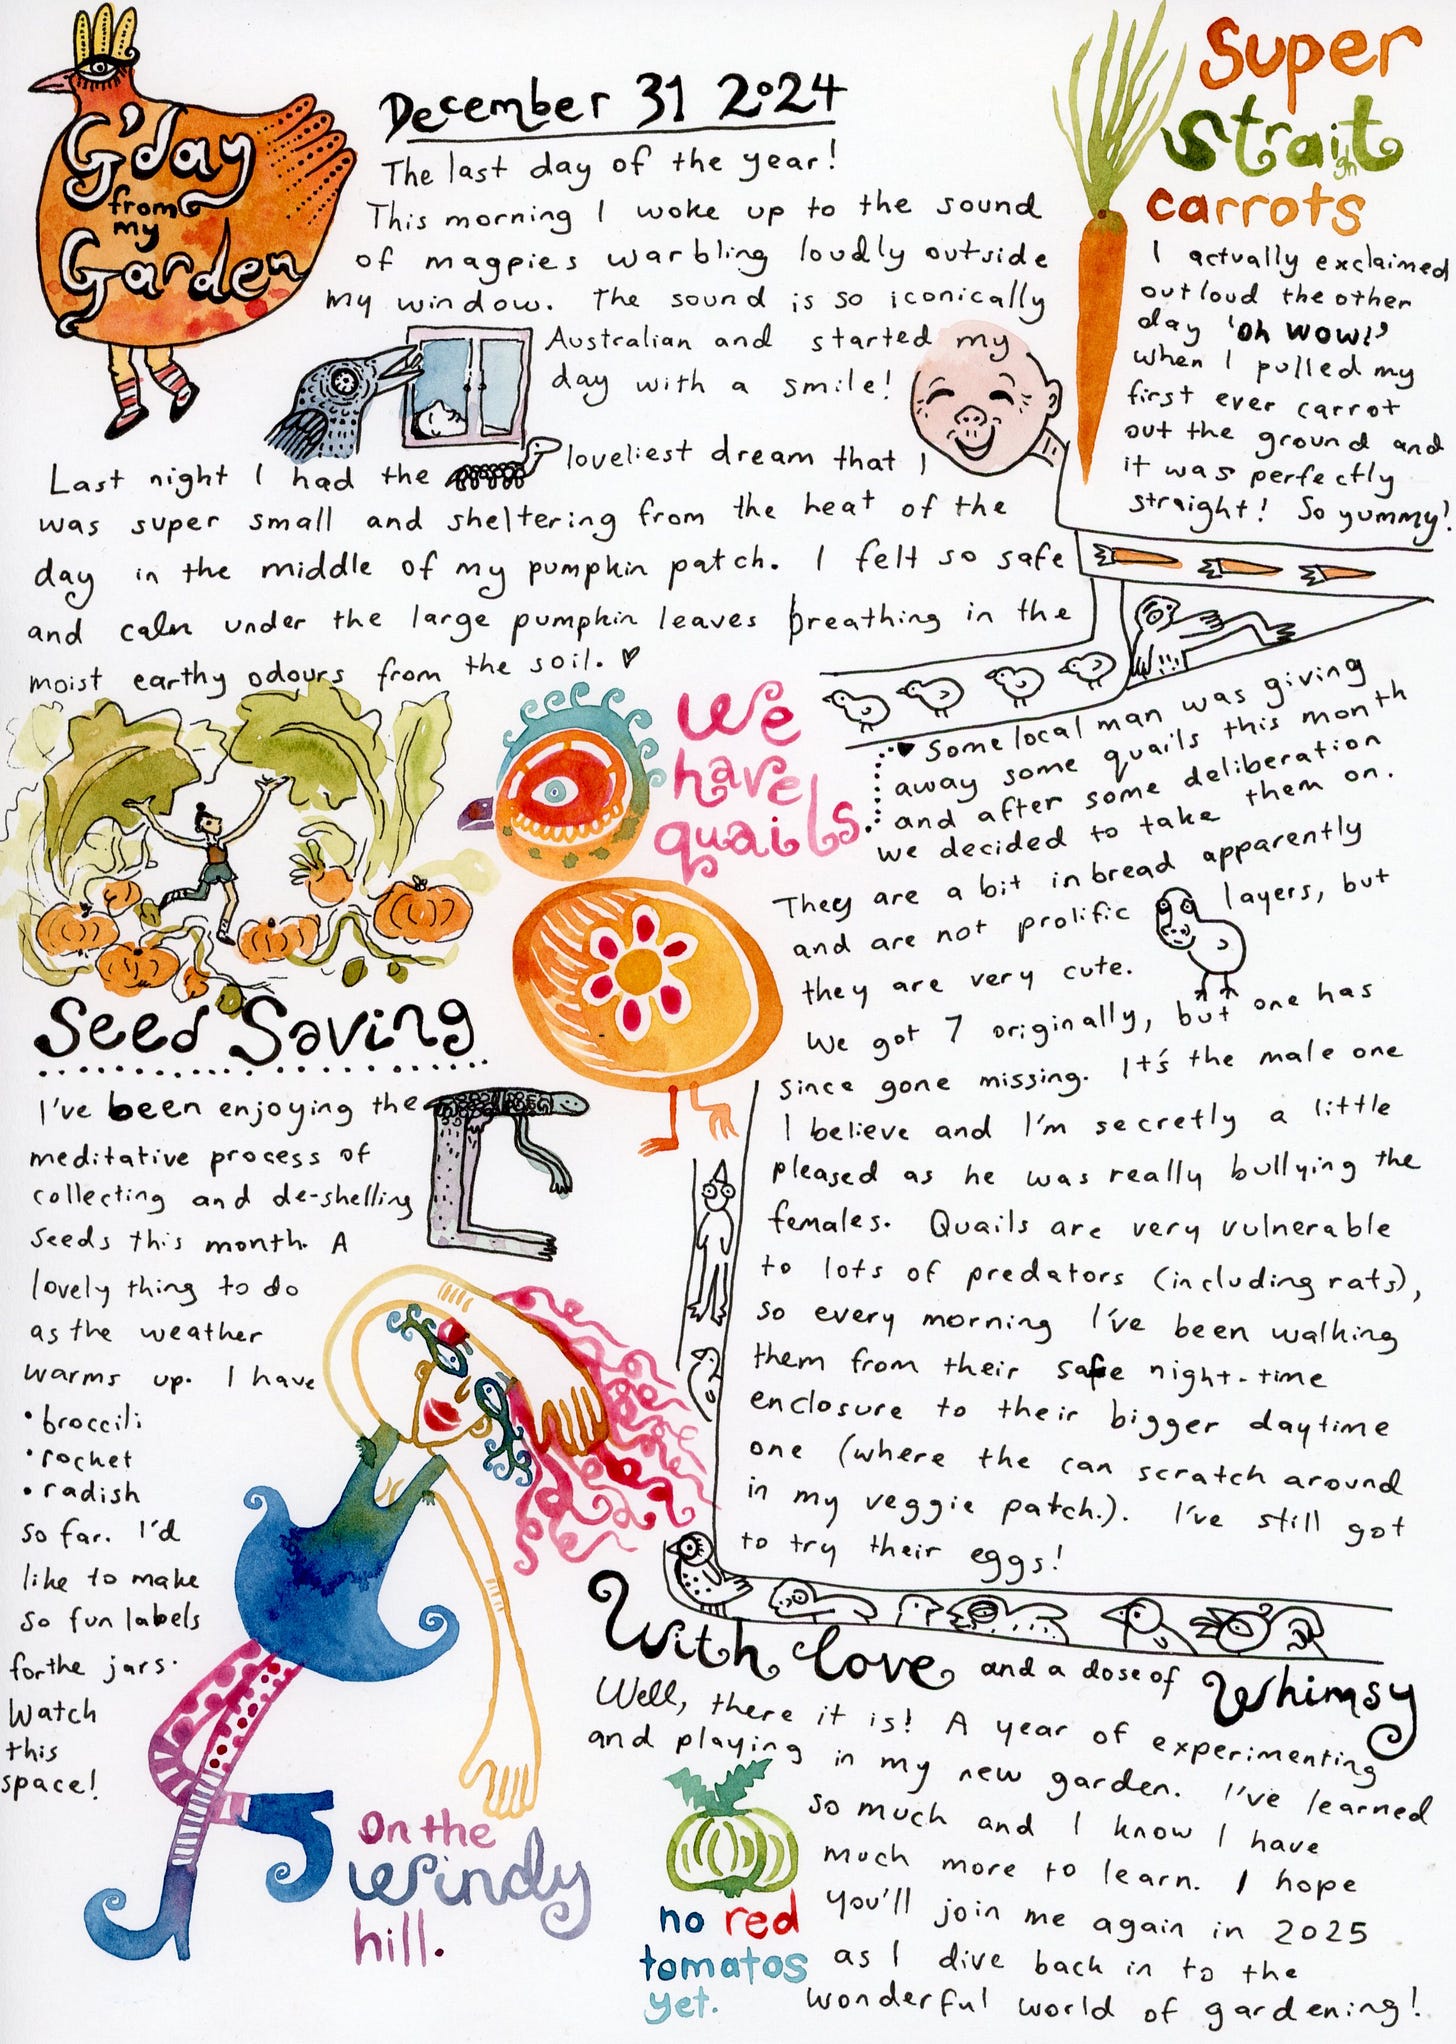 G'day
from
my
Garden
December 31 2024
The last day of the year!
This morning I woke up to the sound
of magpies warbling loudly outside
my window. The sound is so iconically
Australian and started my
day with a smile!
Last night I had the loveliest dream that I
was super small and sheltering from the heat of the
day in the middle of my pumpkin patch. I felt so safe
and calm under the large pumpkin leaves breathing in the
moist earthy odours from the soil. ♡
Super
Straight
carrots
I actually exclaimed
out loud the other
day 'oh wow!'
when I pulled my
first ever carrot
out the ground and
it was perfectly
straight! So yummy!
We
have
quails.
Some local man was giving
away some quails this month
and after some deliberation
we decided to take them on.
They are a bit inbread apparently
and are not prolific layers, but
they are very cute.
We got 7 originally, but one has
since gone missing. It's the male one
I believe and I'm secretly a little
pleased as he was really bullying the
females. Quails are very vulnerable
to lots of predators (including rats),
so every morning I've been walking
them from their safe night-time
enclosure to their bigger daytime
one (where the can scratch around
in my veggie patch.). I've still got
to try their eggs!
Seed Saving
I've been enjoying the
meditative process of
collecting and de-shelling
seeds this month. A
lovely thing to do
as the weather
warms up. I have
• broccili
• rocket
• radish
so far. I'd
like to make
so fun labels
for the jars.
Watch
this
space!
On the
Windy
hill.
With love and a dose of Whimsy
Well, there it is! A year of experimenting
and playing in my new garden. I've learned
so much and I know I have
much more to learn. I hope
you'll join me again in 2025
as I dive back in to the
wonderful world of gardening!
no red
tomatos
yet.